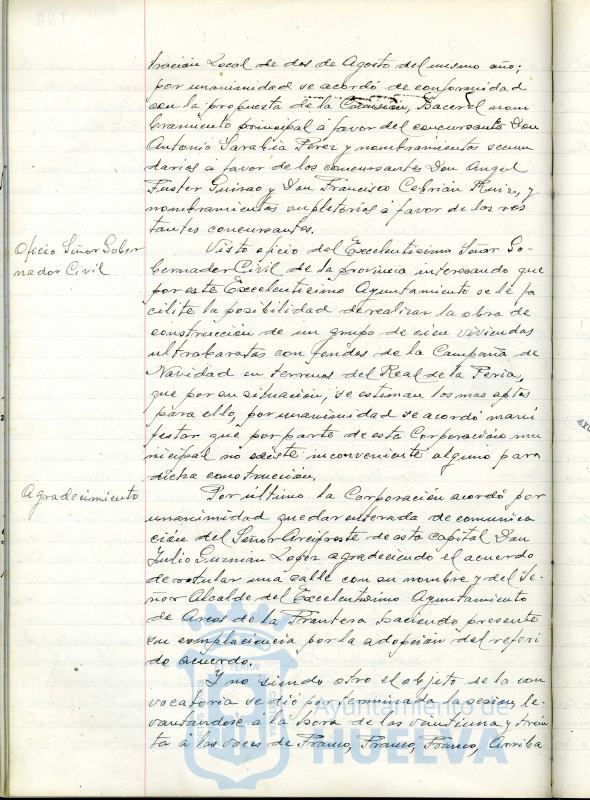 tración Local de dos de Agosto del mismo año;
por unanimidad se acordó de conformidad
con la propuesta de la Comisión, hacer el nom
bramiento principal á favor del concursante Don
Antonio Sarabia Pérez y nombramientos secun
darios á favor de los concursantes Don Angel
Fuster Guirao y Don Francisco Cebrián Ruiz, y
nombramientos supletorios á favor de los res
tantes concursantes.
Oficio Señor Gober
nador Civil
Visto oficio del Excelentísimo Señor Go-
bernador Civil de la provincia interesando que
por este Excelentísimo Ayuntamiento se le fa
cilite la posibilidad de realizar la obra de
construcción de un grupo de cien viviendas
ultrabaratas con fondos de la Campaña de
Navidad en terrenos del Real de la Feria,
que por su situación, se estiman los mas aptos
para ello, por unanimidad se acordó mani
festar que por parte de esta Corporación mu
nicipal no existe inconveniente alguno para
dicha construcción.
Agradecimiento
Por último la Corporación acordó por
unanimidad quedar enterada de comunica
ción del Señor Arcipreste de esta capital Don
Julio Guzman Lopez agradeciendo el acuerdo
de rotular una calle con su nombre y del Se-
ñor Alcalde del Excelentísimo Ayuntamiento
de Arcos de la Frontera haciendo presente
su complacencia por la adopción del referi
do acuerdo.
Y no siendo otro el objeto de la con
vocatoria se dió por terminada la sesion, le-
vantándose á la hora de las veintiuna y trein
ta á las voces de Franco, Franco, Franco, Arriba
Ayuntamiento de
HUELVA